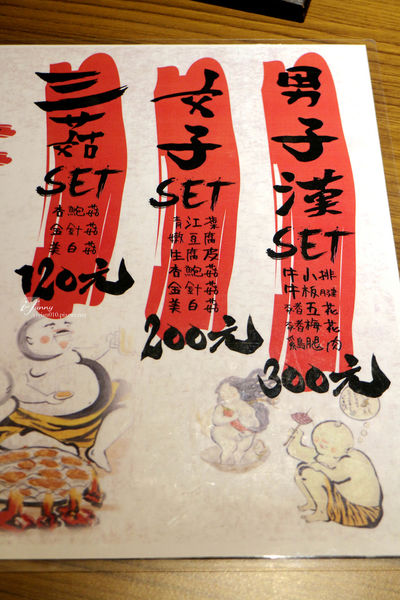 三菇
SET
杏鮑菇
金針菇
美白菇
120元
女子
SET
青江葉
嫩豆腐
生腐皮
杏鮑菇
金針菇
美白菇
200元
男子漢
SET
牛小排
牛板腱
豬五花
豬梅花
雞腿肉
300元